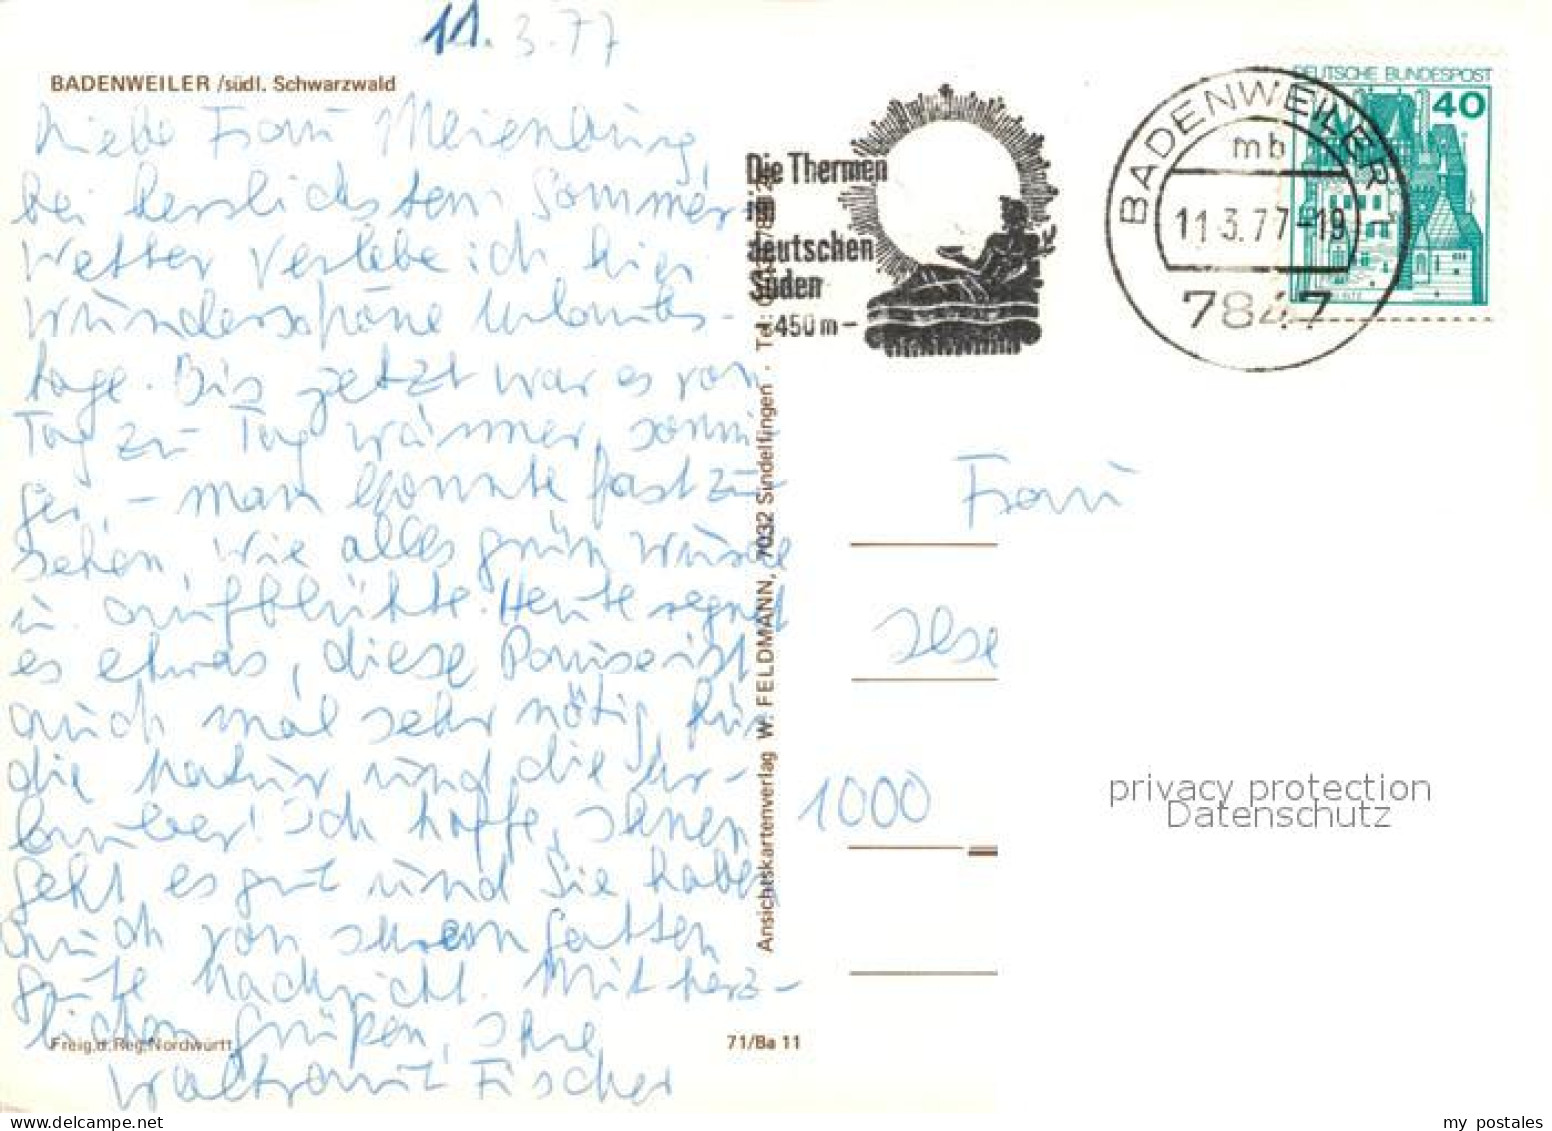 11.3.77
BADENWEILER /südl. Schwarzwald
Liebe Frau Meienburg,
bei herrlichstem Sommer-
Wetter verlebe ich hier
wunderschöne Urlaubs-
tage. Bis jetzt war es von
Tag zu Tag wärmer, sonni-
ger, - man konnte fast zu-
sehen, wie alles grün wurde
u. aufblühte. Heute regnet
es etwas, diese Pause ist
auch mal sehr nötig für
die Natur und die Ur-
lauber! Ich hoffe, Ihnen
geht es gut und Sie haben
auch von Ihrem Gatten
gute Nachricht. Mit herz-
lichen Grüßen, Ihre
Waltraut Fischer
Freig.d.Reg.Nordwürtt.
71/Ba 11
Ansichtskartenverlag W. FELDMANN, 7032 Sindelfingen · Tel.:
Die Thermen
im
deutschen
Süden
450 m -
BADENWEILER 1
mb
11.3.77-19
7847
DEUTSCHE BUNDESPOST
40
Frau
Ilse
1000
privacy protection
Datenschutz
my postales